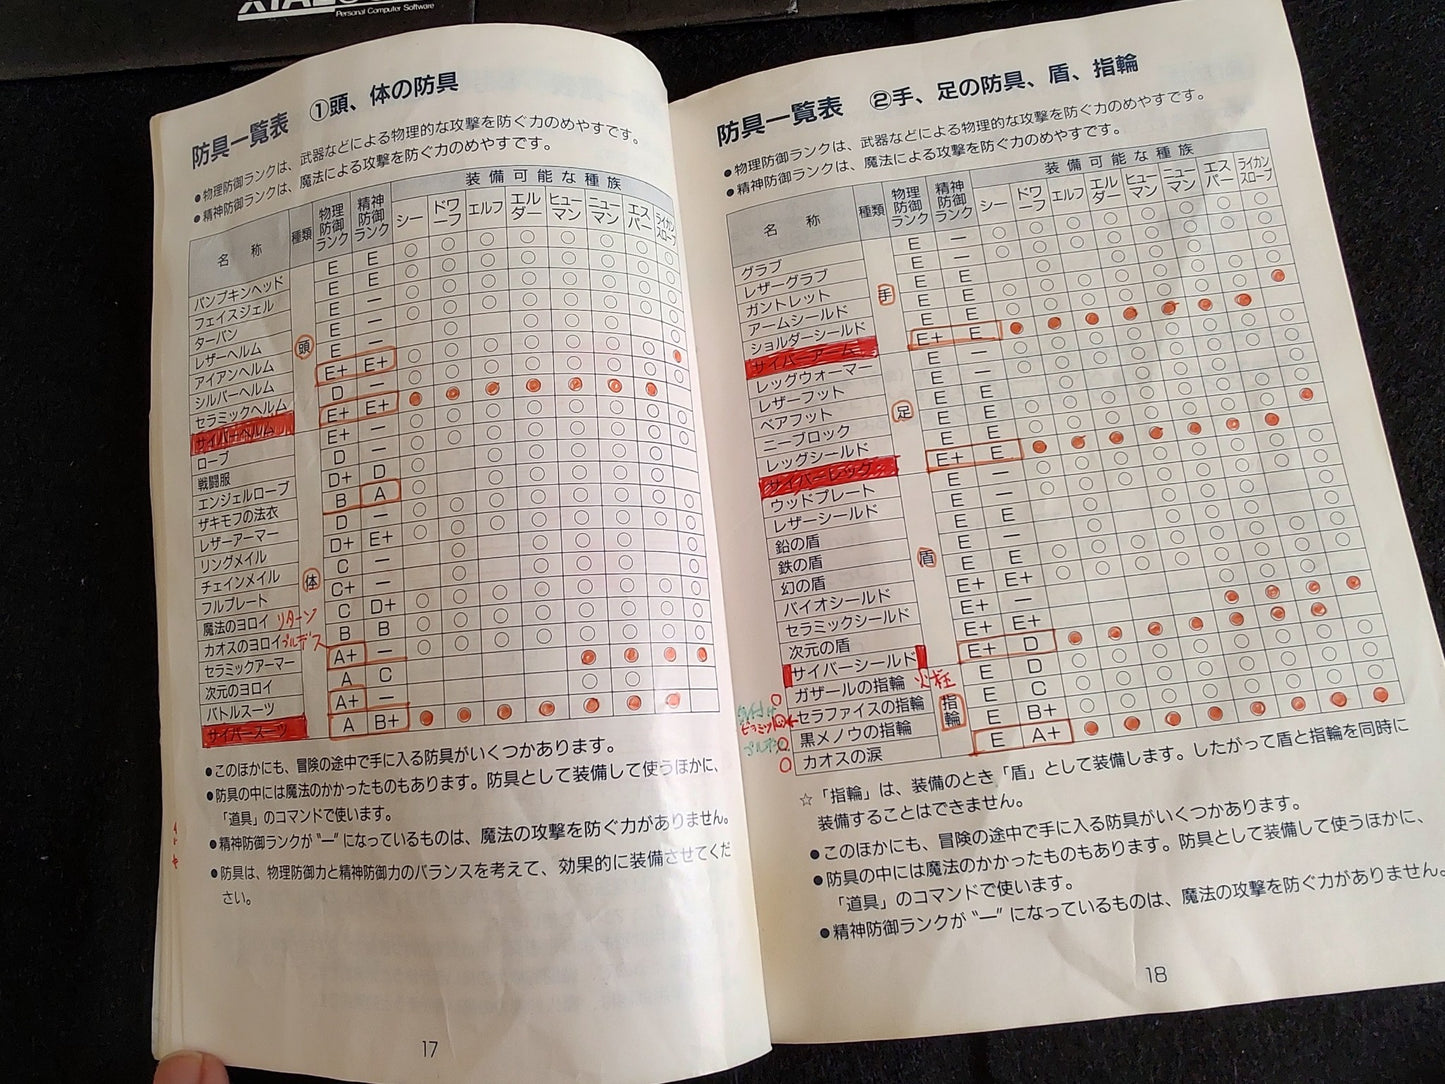 XTAL
Personal Computer Software
防具一覧表 ①頭、体の防具
●物理防御ランクは、武器などによる物理的な攻撃を防ぐ力のめやすです。
●精神防御ランクは、魔法による攻撃を防ぐ力のめやすです。
名称 種類 物理防御ランク 精神防御ランク 装備可能な種族
シー ドワーフ エルフ エルダー ヒューマン ニューマン エスパー ライカンスロープ
頭
パンプキンヘッド E E
フェイスジェル E E
ターバン E ー
レザーヘルム E ー
アイアンヘルム E ー
シルバーヘルム E+ E+
セラミックヘルム D ー
サイバーヘルム E+ E+
体
ローブ E+ ー
戦闘服 D ー
エンジェルローブ D+ D
ザキモフの法衣 B A
レザーアーマー D ー
リングメイル D+ E+
チェインメイル C ー
フルプレート C+ ー
魔法のヨロイ リターン C D+
カオスのヨロイ ブルデス B B
セラミックアーマー A+ ー
次元のヨロイ A C
バトルスーツ A+ ー
サイバースーツ A B+
●このほかにも、冒険の途中で手に入る防具がいくつかあります。
●防具の中には魔法のかかったものもあります。防具として装備して使うほかに、
「道具」のコマンドで使います。
●精神防御ランクが“ー”になっているものは、魔法の攻撃を防ぐ力がありません。
●防具は、物理防御力と精神防御力のバランスを考えて、効果的に装備させてくだ
さい。
17
防具一覧表 ②手、足の防具、盾、指輪
●物理防御ランクは、武器などによる物理的な攻撃を防ぐ力のめやすです。
●精神防御ランクは、魔法による攻撃を防ぐ力のめやすです。
名称 種類 物理防御ランク 精神防御ランク 装備可能な種族
シー ドワーフ エルフ エルダー ヒューマン ニューマン エスパー ライカンスロープ
手
グラブ E ー
レザーグラブ E ー
ガントレット E E
アームシールド E E
ショルダーシールド E E
サイバーアーム E+ E
足
レッグウォーマー E ー
レザーフット E ー
ベアフット E E
ニーブロック E E
レッグシールド E E
サイバーレッグ E+ E
盾
ウッドプレート E ー
レザーシールド E ー
鉛の盾 E E
鉄の盾 E ー
幻の盾 E E
バイオシールド E+ E+
セラミックシールド E+ ー
次元の盾 E+ E+
サイバーシールド E+ D
指輪
ガザールの指輪 火柱 E D
セラファイスの指輪 E C
黒メノウの指輪 E B+
カオスの涙 E A+
☆「指輪」は、装備のとき「盾」として装備します。したがって盾と指輪を同時に
装備することはできません。
●このほかにも、冒険の途中で手に入る防具がいくつかあります。
●防具の中には魔法のかかったものもあります。防具として装備して使うほかに、
「道具」のコマンドで使います。
●精神防御ランクが“ー”になっているものは、魔法の攻撃を防ぐ力がありません。
18